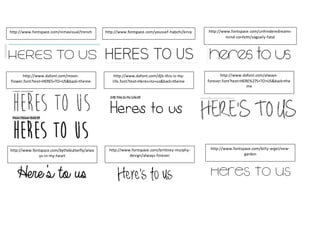 http://www.fontspace.com/nimavisual/moroh
HERES TO US
http://www.fontspace.com/youssef-habchi/leroy
HERES TO US
heres to us
http://www.dafont.com/moon-
flower.font?text=HERES+TO+US&back=theme
HERES TO US
HERES TO US
http://www.dafont.com/djb-this-is-my-
life.font?text=Heres+to+us&back=theme
Heres to us
http://www.dafont.com/always-
forever.font?text=HERE%27S+TO+US&back=the
me
HERE'S TO US
us-in-my-heart
Here's to us
http://www.fontspace.com/brittney-murphy-
design/always-forever
Here's to us
http://www.fontspace.com/billy-argel/new-
garden
HERES TO US